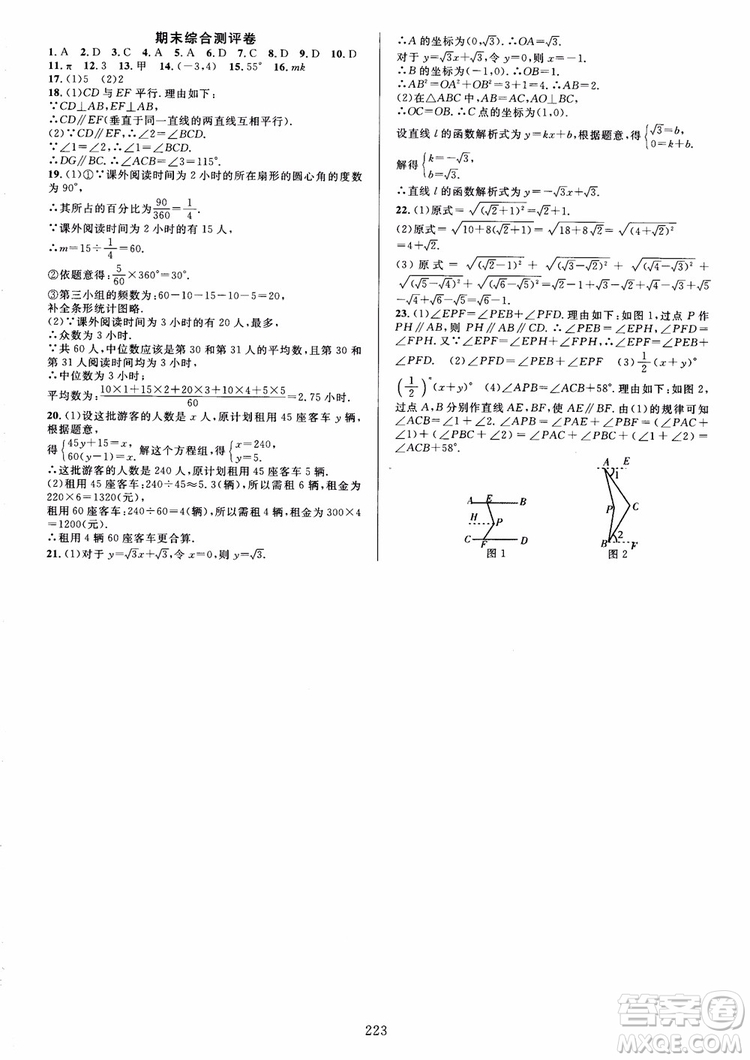 期末综合测评卷
1. A 2. D 3. C 4. A 5. A 6. D 7. C 8. D 9. D 10. D
11. π 12. 3 13. 甲 14. (-3,4) 15. 55° 16. mk
17. (1)5 (2)2
18. (1)CD 与 EF 平行. 理由如下:
∵CD⊥AB,EF⊥AB,
∴CD∥EF(垂直于同一直线的两直线互相平行).
(2)∵CD∥EF,∴∠2=∠BCD.
∵∠1=∠2,∴∠1=∠BCD.
∴DG∥BC. ∴∠ACB=∠3=115°.
19. (1)①∵课外阅读时间为 2 小时的所在扇形的圆心角的度数
为 90°,
∴其所占的百分比为 90/360=1/4.
∵课外阅读时间为 2 小时的有 15 人,
∴m=15÷1/4=60.
②依题意得:5/60×360°=30°.
③第三小组的频数为:60-10-15-10-5=20,
补全条形统计图略.
(2)∵课外阅读时间为 3 小时的有 20 人,最多,
∴众数为 3 小时;
∵共 60 人,中位数应该是第 30 和第 31 人的平均数,且第 30 和
第 31 人阅读时间均为 3 小时,
∴中位数为 3 小时;
平均数为:(10×1+15×2+20×3+10×4+5×5)/60=2.75 小时.
20. (1)设这批游客的人数是 x 人,原计划租用 45 座客车 y 辆.
根据题意,
得{45y+15=x, 60(y-1)=x, 解这个方程组,得{x=240, y=5.
∴这批游客的人数是 240 人,原计划租用 45 座客车 5 辆.
(2)租用 45 座客车:240÷45≈5.3(辆),需租用 6 辆,租金为
220×6=1320(元),
租用 60 座客车:240÷60=4(辆),需租用 4 辆,租金为 300×4
=1200(元).
∴租用 4 辆 60 座客车更合算.
21. (1)对于 y=√3x+√3,令 x=0,则 y=√3.
∴A 的坐标为(0,√3). ∴OA=√3.
对于 y=√3x+√3,令 y=0,则 x=-1.
∴B 的坐标为(-1,0). ∴OB=1.
∴AB²=OA²+OB²=3+1=4. ∴AB=2.
(2)在△ABC 中,AB=AC,AO⊥BC,
∴OC=OB. ∴C 点的坐标为(1,0).
设直线 l 的函数解析式为 y=kx+b,根据题意,得{√3=b, 0=k+b.
解得{k=-√3, b=√3.
∴直线 l 的函数解析式为 y=-√3x+√3.
22. (1)原式=√(√2+1)²=√2+1.
(2)原式=√10+8(√2+1)=√18+8√2=√(4+√2)²
=4+√2.
(3)原式=√(√2-1)²+√(√3-√2)²+√(√4-√3)²+
√(√5-√4)²+√(√6-√5)²=√2-1+√3-√2+√4-√3
+√5-√4+√6-√5=√6-1.
23. (1)∠EPF=∠PEB+∠PFD. 理由如下:如图 1,过点 P 作
PH∥AB,则 PH∥CD. ∴∠PEB=∠EPH,∠PFD=
∠FPH. 又∵∠EPF=∠EPH+∠FPH,∴∠EPF=∠PEB+
∠PFD. (2)∠PFD=∠PEB+∠EPF (3)1/2(x+y)°
(1/2)ⁿ(x+y)° (4)∠APB=∠ACB+58°. 理由如下:如图 2,
过点 A,B 分别作直线 AE,BF,使 AE∥BF. 由(1)的规律可知
∠ACB=∠1+∠2. ∠APB=∠PAE+∠PBF=(∠PAC+
∠1)+(∠PBC+∠2)=∠PAC+∠PBC+(∠1+∠2)=
∠ACB+58°.
A E B
H P
C F D
图 1
A E
1
P C
2
B F
图 2
223
答案圈
MXQE.COM